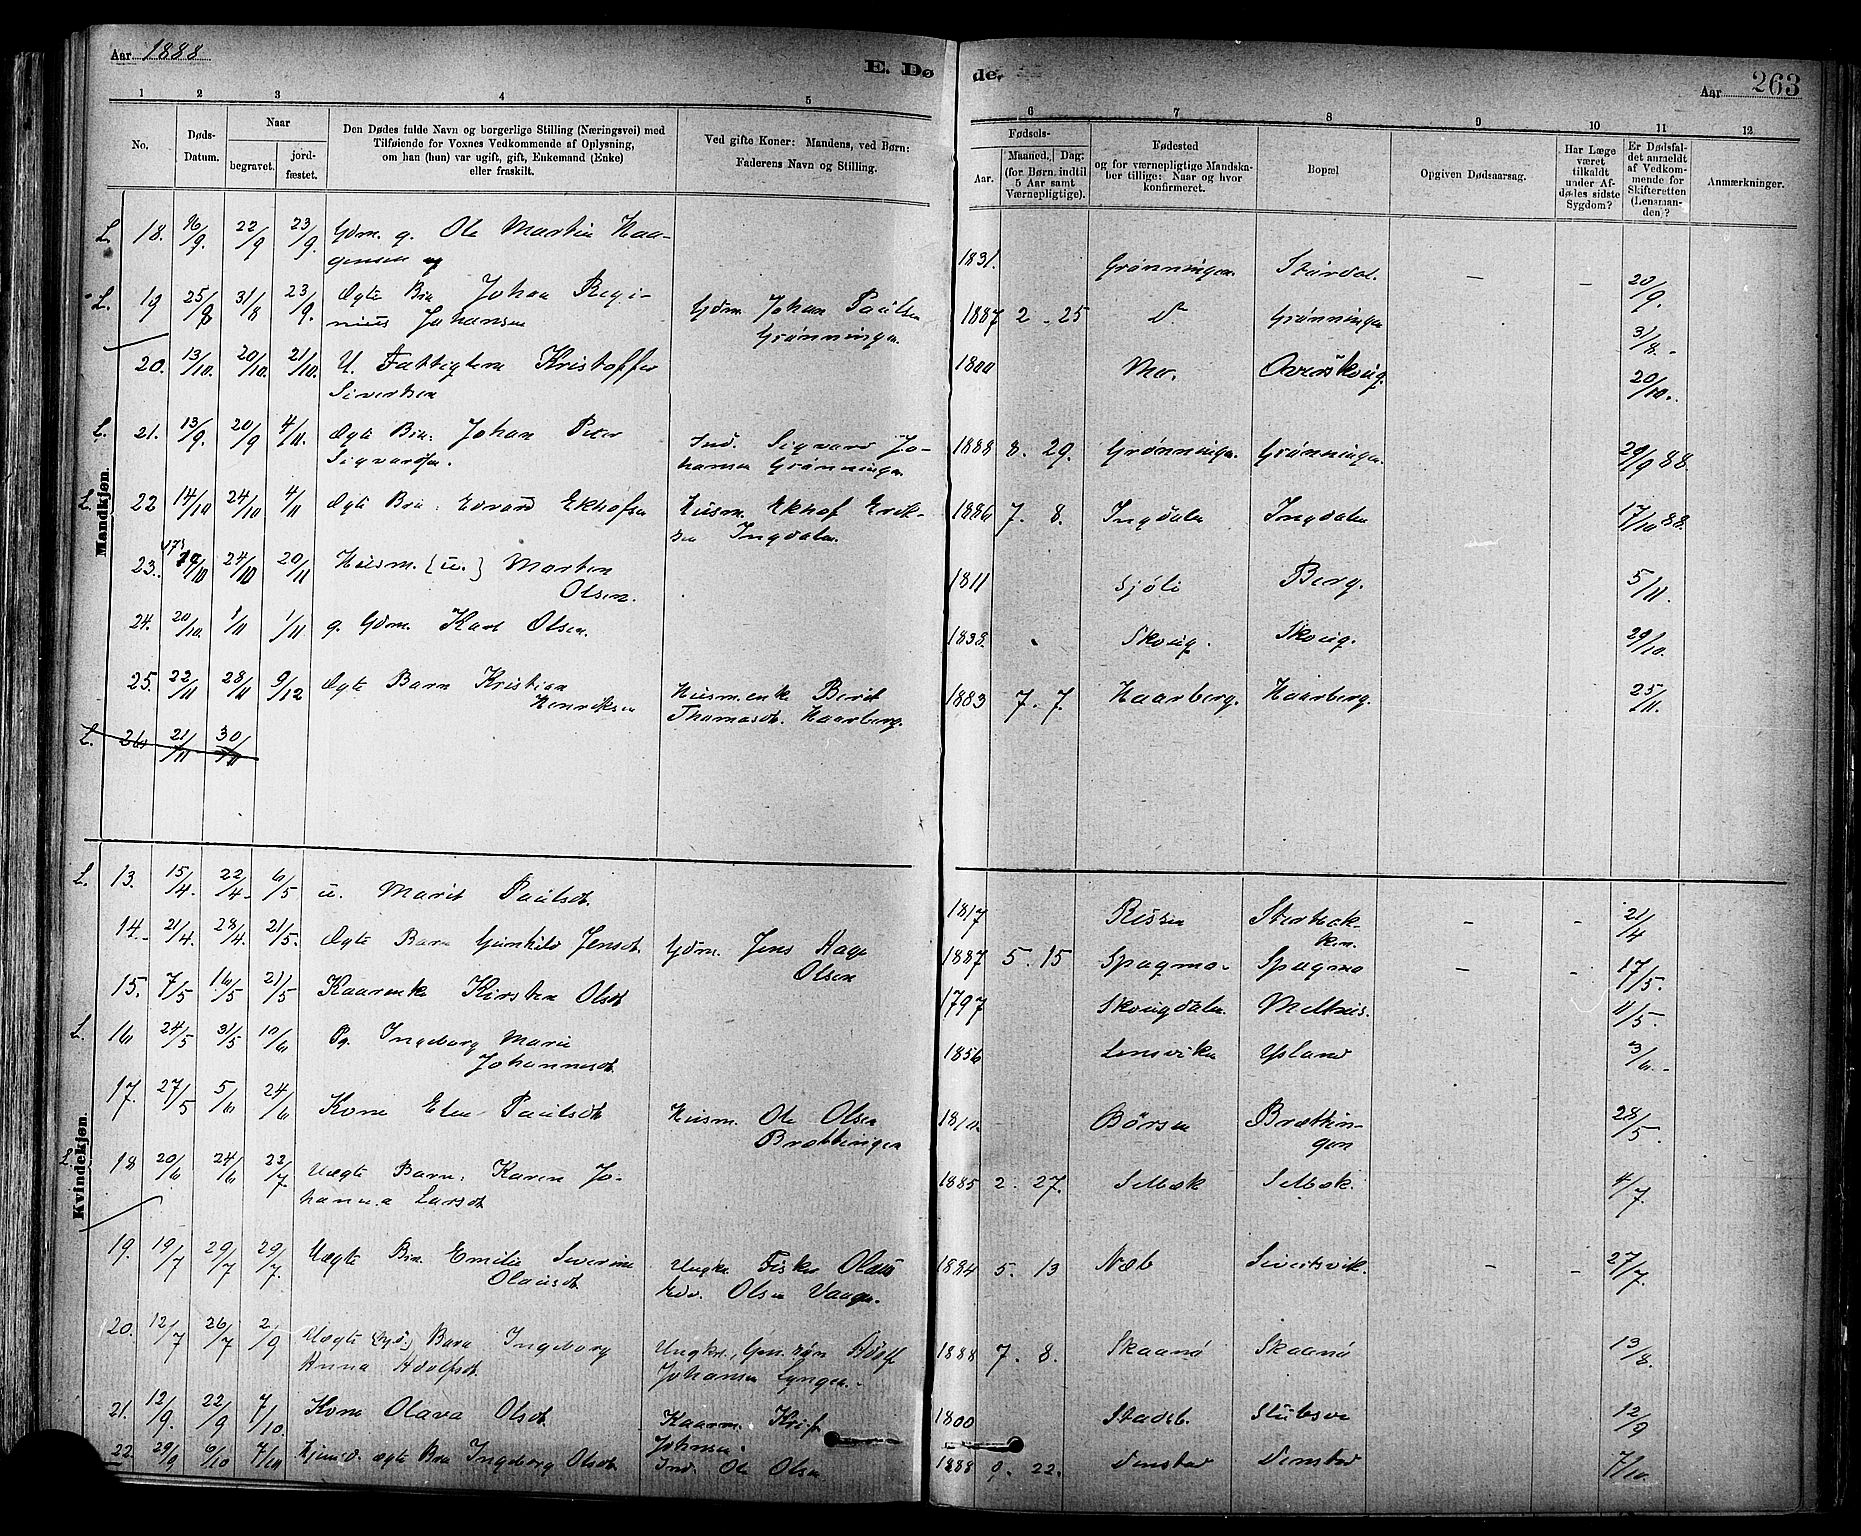 Aar 1888
E. Dø
de.
Aar
263
1 2 3 4 5 6 7 8 9 10 11 12
No.
Døds-
Datum.
Naar
begravet.
jord-
fæstet.
Den Dødes fulde Navn og borgerlige Stilling (Næringsvei) med
Tilføiende for Voxnes Vedkommende af Oplysning,
om han (hun) var ugift, gift, Enkemand (Enke)
eller fraskilt.
Ved gifte Koner: Mandens, ved Børn:
Faderens Navn og Stilling.
Fødsels-
Aar.
Maaned, Dag:
(for Børn indtil
5 Aar samt
Værnepligtige).
Fødested
og for værnepligtige Mandska-
ber tillige: Naar og hvor
konfirmeret.
Bopæl
Opgiven Dødsaarsag.
Har Læge
været
tilkaldt
under Af-
dødes sidste
Sygdom?
Er Dødsfal-
det anmeldt
af Vedkom-
mende for
Skifteretten
(Lensman-
den)?
Anmærkninger.
Mandkjøn.
L. 18. 16/9. 22/9 23/9. Gdm. g. Ole Martin Haa-
gensen
1831. Grønningen. Stårdal. - - 20/9.
L. 19 25/8 31/8 23/9. Ægte Bn Johan Regi-
nius Johansen
Gdm. Johan Paulsen
Grønningen.
1887 2 - 25 Grønningen 31/8.
20. 13/10. 20/10. 21/10. U. Fattiglem Kristoffer
Sivertsen
1800 Mo. Overskoug. 20/10.
L. 21. 13/9. 20/9 4/11. Ægte Bn. Johan Peter
Sigvardsen.
Ind. Sigvard Jo-
hansen Grønningen
1888 8. 29. Grønningen. Grønningen. 29/9 88.
L. 22 14/10 24/10 4/11 Ægte Bn. Edvard Ekhofsen
Husm. Ekhof Erik-
sen Ingdalen.
1886 7. 8. Ingdalen Ingdalen 17/10 88.
23. 17/10 24/10 20/11 Husm. (u.) Morten
Olsen.
1811 Sjøli Berg. 5/11
24. 20/10. 1/11 1/11 g. Gdm. Karl Olsen.
1833. Skoug. Skoug. 29/10.
25. 22/11 28/11 9/12 Ægte Barn Kristian
Henriksen
Husm.enke Berit
Thomasdt. Haarberg.
1883 7. 7. Haarberg. Haarberg. 25/11.
L. 26 21/11 30/11
Kvindekjøn.
L. 13. 15/4. 22/4. 6/5 u. Marit Paulsdt.
1817 Rissen Størbæk-
ken. - - 21/4
14. 21/4. 28/4. 21/5. Ægte Barn Gunhild Jensdt.
Gdm. Jens Aage
Olsen
1887 5. 15 Spagmo. Spagmo - - 17/5.
15. 7/5 16/5 21/5 Kaarenke Kirsten Olsdt
1797 Skougdalen Melknis. 11/5.
L. 16 24/5 31/5 10/6 Pg. Ingeborg Marie
Johannesdt.
1856 Lensviken Ysland 3/6.
17. 27/5 5/6 24/6 Kone Elen Paulsdt
Husm. Ole Olsen
Brættingen
1810. Børsen Brætting-
en 28/5.
L. 18 20/6 24/6 22/7 Uægte Barn. Karen Jo-
hanna Larsdt
1885 2. 27. Selbæk Selbæk. 4/7.
19. 19/7 29/7 29/7. Uægte Bn Emilie Severine
Olausdt.
Ungk. Fisker Olaus
Edv. Olsen Vaagen.
1884 5. 13 Næb Sivertsvik. - - 27/7.
20. 12/7 26/7 2/9 Uægte Barn Ingeborg
Anna Adolfsdt.
Ungkr. Adolf
Johansen Lyngen.
1888 7. 8. Skaanø Skaanø 13/8.
21. 12/9. 22/9 7/10. Kone Olava Olsdt.
Kaarm. Krist
Johnsen.
1800 Stadsb. Stubsve 12/9
22. 29/9 6/10 7/10 Hjemd. ægte Bn Ingeborg Olsdt
Ind. Ole Olsen
1888 9. 22. Venstad Venstad 7/10.